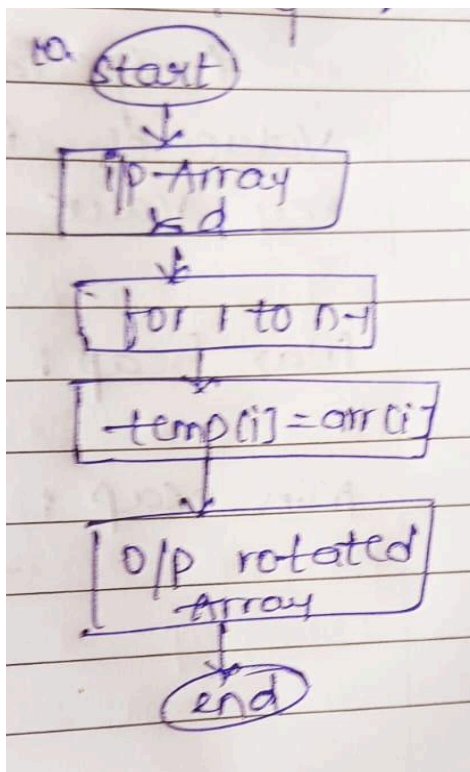 10.
start
i/p-Array
& d
for i to n-1
temp[i] = arr[i]
O/P rotated
Array
end